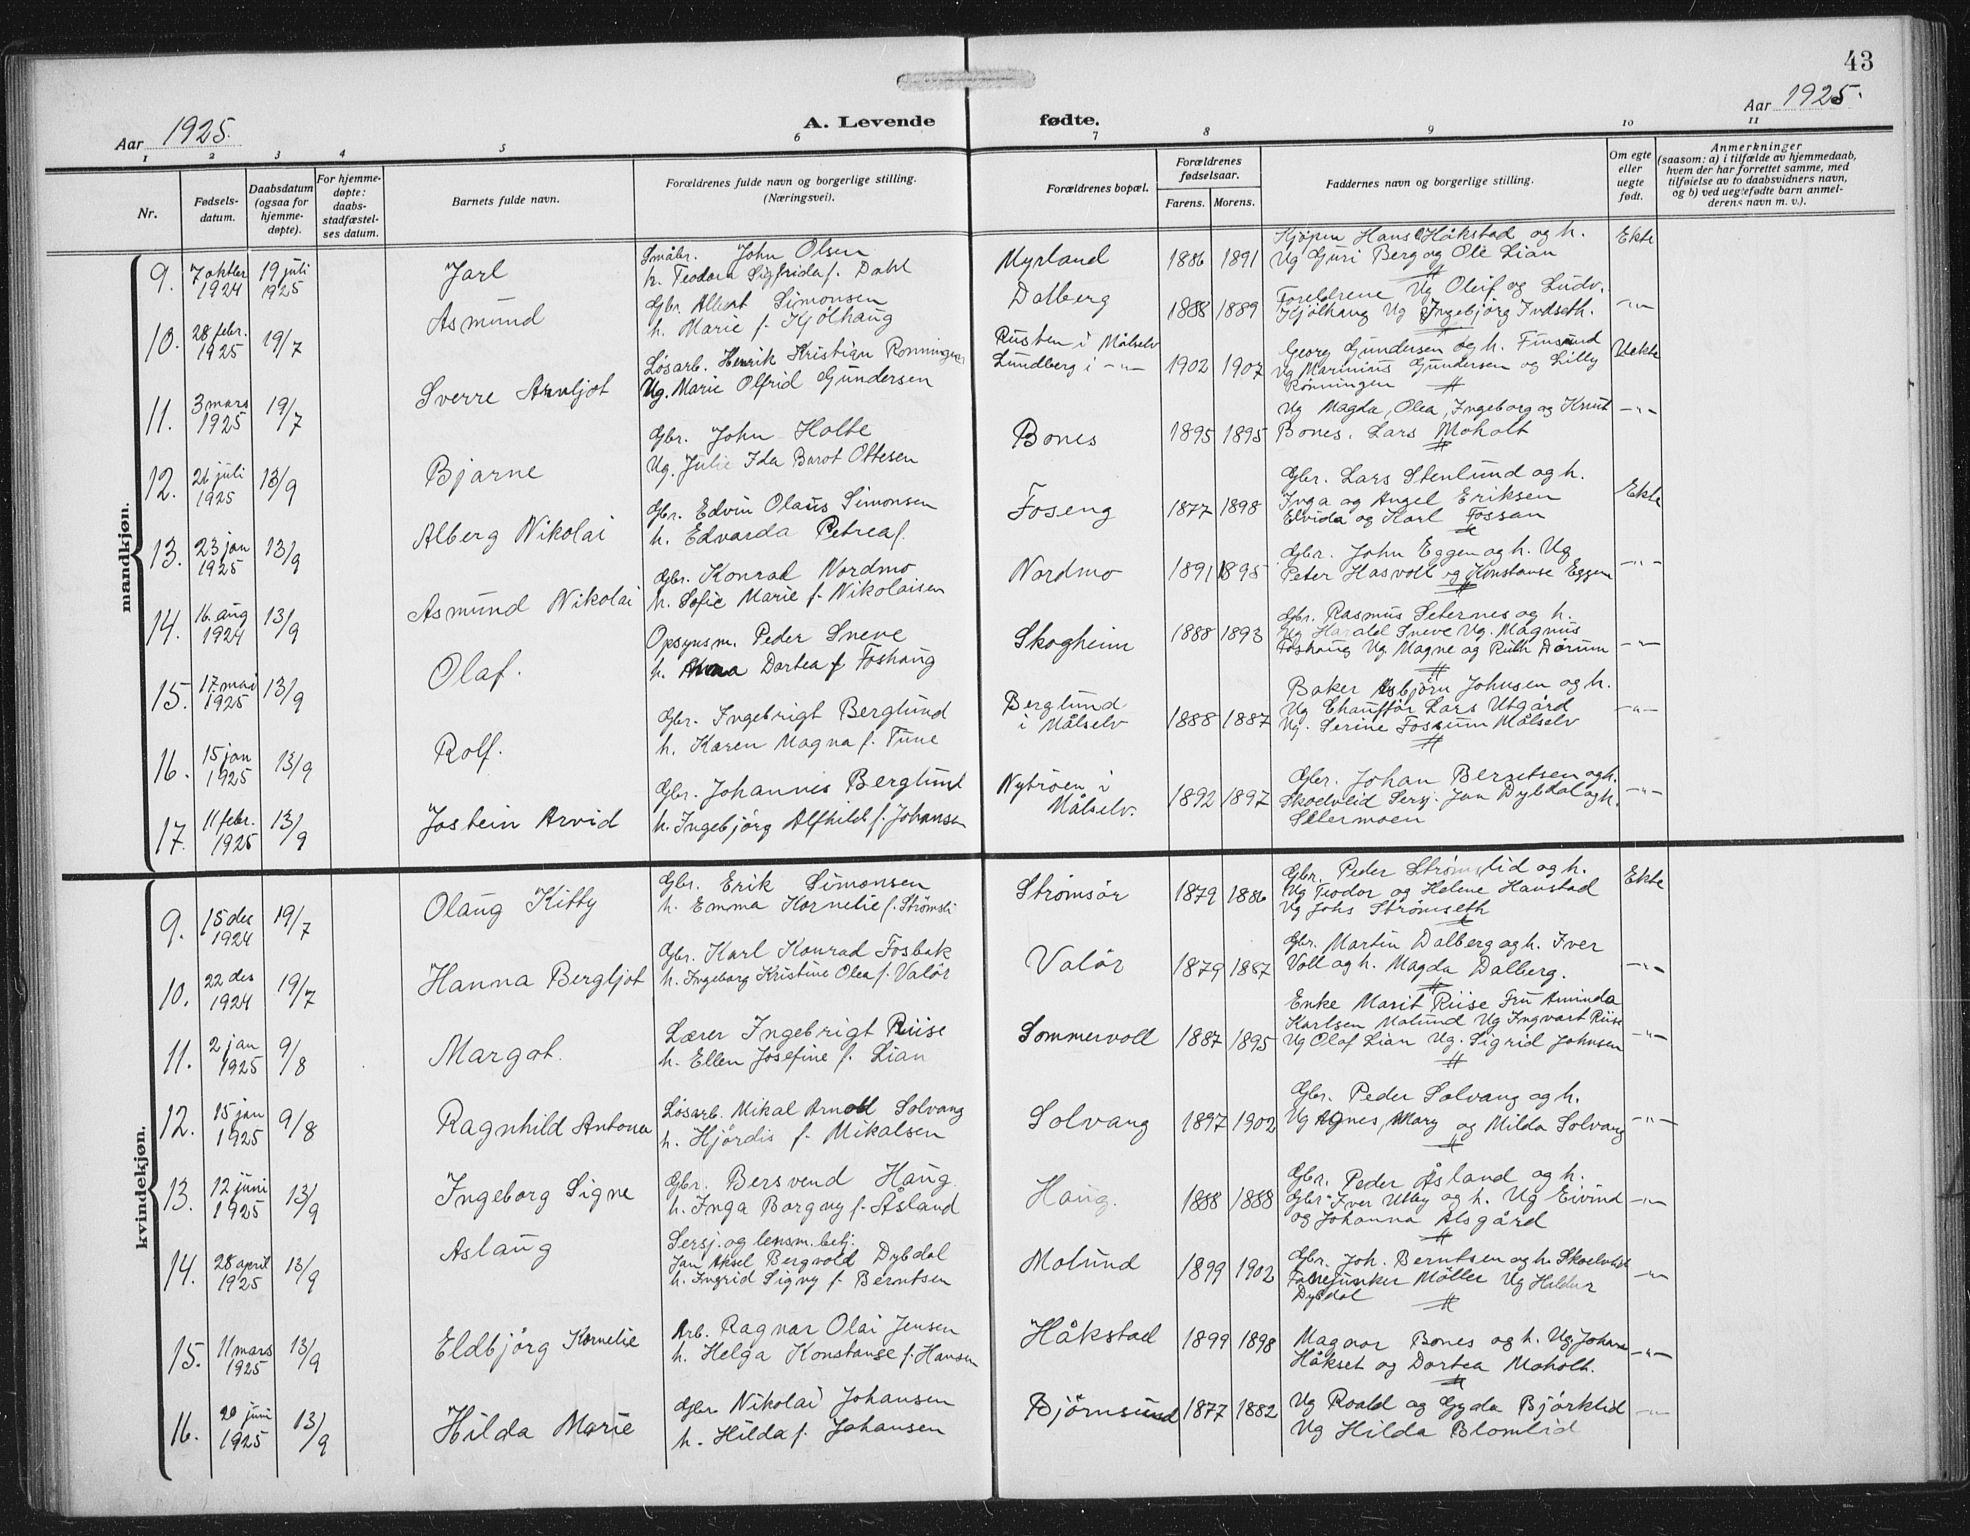 43
Aar 1925.
A. Levende fødte.
Aar 1925.
1 2 3 4 5 6 7 8 9 10 11
Nr.
Fødsels-
datum.
Daabsdatum
(ogsaa for
hjemme-
døpte).
For hjemme-
døpte:
daabs-
stadfæstel-
ses datum.
Barnets fulde navn.
Forældrenes fulde navn og borgerlige stilling.
(Næringsvei).
Forældrenes bopæl.
Forældrenes
fødselsaar.
Farens. Morens.
Faddernes navn og borgerlige stilling.
Om egte
eller
uegte
født.
Anmerkninger
(saasom: a) i tilfælde av hjemmedaab,
hvem der har forrettet samme, med
tilføielse av to daabsvidners navn,
og b) ved uegtefødte barn anmel-
derens navn m. v.).
mandkjøn.
9. 7 oktbr 1924 19 juli 1925 Jarl
Småbr. John Olsen
h. Teodora Sigfrida f. Dahl
Myrland 1886 1891
Kjöpm Hans Håkstad og h.
Ug Guri Berg og Ole Lian
Ekte
10. 28 febr. 1925 19/7 Asmund
Gbr. Albert Simonsen
h. Marie f. Kjølhaug
Dalberg 1888 1889
Foreldrene Ug Oleif og Ludv.
Kjölhaug Ug Ingebjörg Indseth.
-"-
11. 3 mars 1925 19/7 Sverre Arvljot
Løsarb. Henrik Kristian Ronningen
Ug. Marie Olfrid Gundersen
Rusten i Målselv
Lundberg i -"- 1902 1907
Georg Gundersen og h. Finsund
Ug Marinius Gundersen og Lilly
Rønningen
Uekte
12. 26 juli 1925 13/9 Bjarne
Gbr. John Holte
Ug. Julie Ida Barot Ottesen
Bones 1895 1895
Ug Magda, Olea, Ingeborg og Knut
Bones. Lars Moholt
-"-
13. 23 jan 1925 13/9 Alberg Nikolai
Gbr. Edvin Olaus Simonsen
h. Edvarda Petrea f.
Foseng 1877 1898
Gbr. Lars Stenlund og h.
Inga og Angel Eriksen
Elvida og Karl Fossan
Ekte
14. 16. aug 1924 13/9 Asmund Nikolai
Gbr. Konrad Nordmo
h. Sofie Marie f. Nikolaisen
Nordmo 1891 1895
Gbr. John Eggen og h. Ug
Peter Hasvoll og Konstanse Eggen
-"-
15. 17 mai 1925 13/9 Olaf.
Opsynsm. Peder Sneve
h. Anna Dortea f. Foshaug
Skogheim 1888 1893
Gbr. Rasmus Seternes og h.
Ug Harald Sneve Ug. Magnus
Foshaug Ug Magne og Ruth Dorum
-"-
16. 15 jan 1925 13/9 Rolf.
Gbr. Ingebrigt Berglund
h. Karen Magna f. Tune
Berglund
i Målselv 1888 1887
Baker Asbjörn Johnsen og h.
Ug Chauffør Lars Utgård
Ug. Serine Fossum Målselv
-"-
17. 11 febr. 1925 13/9 Jostein Arvid
Gbr. Johannes Berglund
h. Ingebjörg Alfhild f. Johansen
Nybröen i
Målselv. 1892 1897
Gbr. Johan Berntsen og h.
Skoelvlid Sersj. Jan Dybdal og h.
Setermoen
-"-
kvindekjøn.
9. 15 des 1924 19/7 Olaug Kitty
Gbr. Erik Simonsen
h. Emma Kornelie f. Strømsli
Strømsör 1879 1886
Gbr. Peder Strømslid og h.
Ug Teodor og Helene Hanstad
Ug Johs Strømseth
Ekte
10. 22 des 1924 19/7 Hanna Bergljot
Gbr. Karl Konrad Fosbak
h. Ingeborg Kristine Olea f. Valör
Valör 1879 1887
Gbr. Martin Dalberg og h. Iver
Voll og h. Magda Dalberg.
-"-
11. 2 jan 1925 9/8 Margot.
Lærer Ingebrigt Riise
h. Ellen Josefine f. Lian
Sommervoll 1887 1895
Enke Marit Riise Fru Aminda
Karlsen Molund Ug Ingvart Riise
Ug Olaf Lian Ug. Sigrid Johnsen
-"-
12. 15 jan 1925 9/8 Ragnhild Antona
Løsarb. Mikal Arnold Solvang
h. Hjördis f. Mikalsen
Solvang 1897 1902
Gbr. Peder Solvang og h.
Ug Agnes, Mary og Milda Solvang
-"-
13. 12 juni 1925 13/9 Ingeborg Signe
Gbr. Bersvend Haug
h. Inga Borgny f. Åsland
Haug. 1888 1888
Gbr. Peder Åsland og h.
Gbr Iver Utby og h. Ug Eivind
og Johanna Alsgård
-"-
14. 28 april 1925 13/9 Aslaug
Sersj. og lensm. betj.
Jan Aksel Bergvold Dybdal
h. Ingrid Signy f. Berntsen
Molund 1899 1902
Gbr. Joh. Berntsen og h. Skoelvlid
Fanejunker Möller Ug Hildur
Dybdal
-"-
15. 11 mars 1925 13/9 Eldbjörg Kornelie
Arb. Ragnar Olai Jensen
h. Helga Konstanse f. Hansen
Håkstad 1899 1898
Magnor Bones og h. Ug. Johan
Håkset og Dortea Moholt.
-"-
16. 20 juni 1925 13/9 Hilda Marie
Gbr Nikolai Johansen
h. Hilda f. Johansen
Björnsund 1877 1882
Ug Roald og Gyda Björklid
Ug Hilda Blomlid
-"-